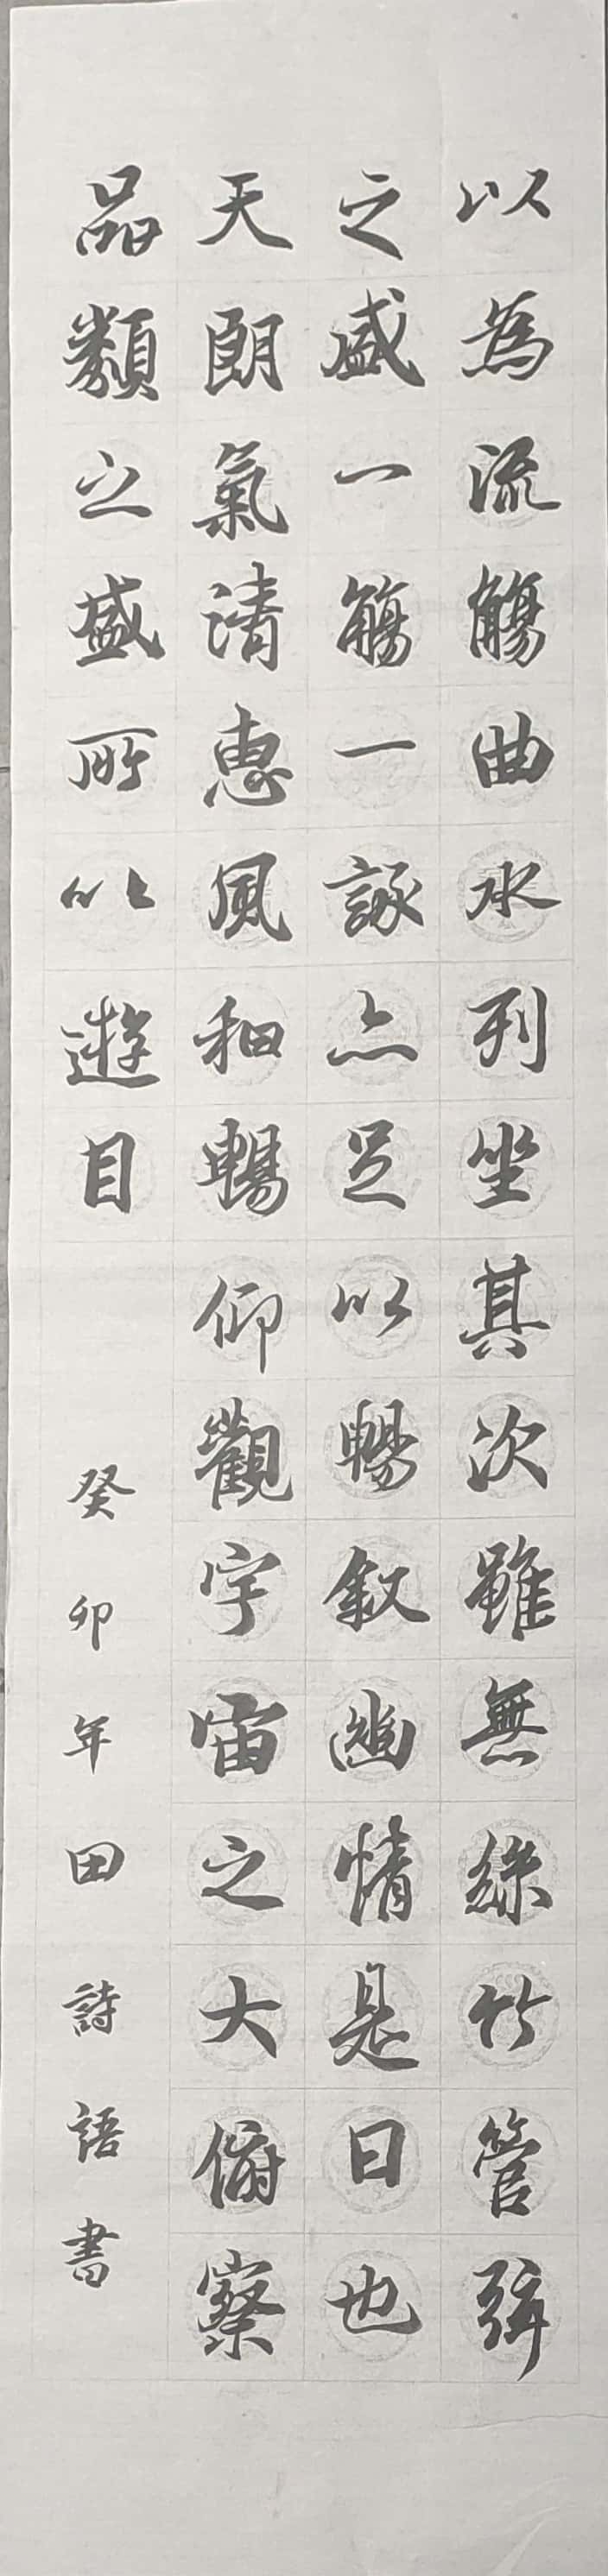 以為流觴曲水列坐其次雖無絲竹管弦
之盛一觴一詠亦足以暢敘幽情是日也
天朗氣清惠風和暢仰觀宇宙之大俯察
品類之盛所以遊目
癸卯年田詩語書